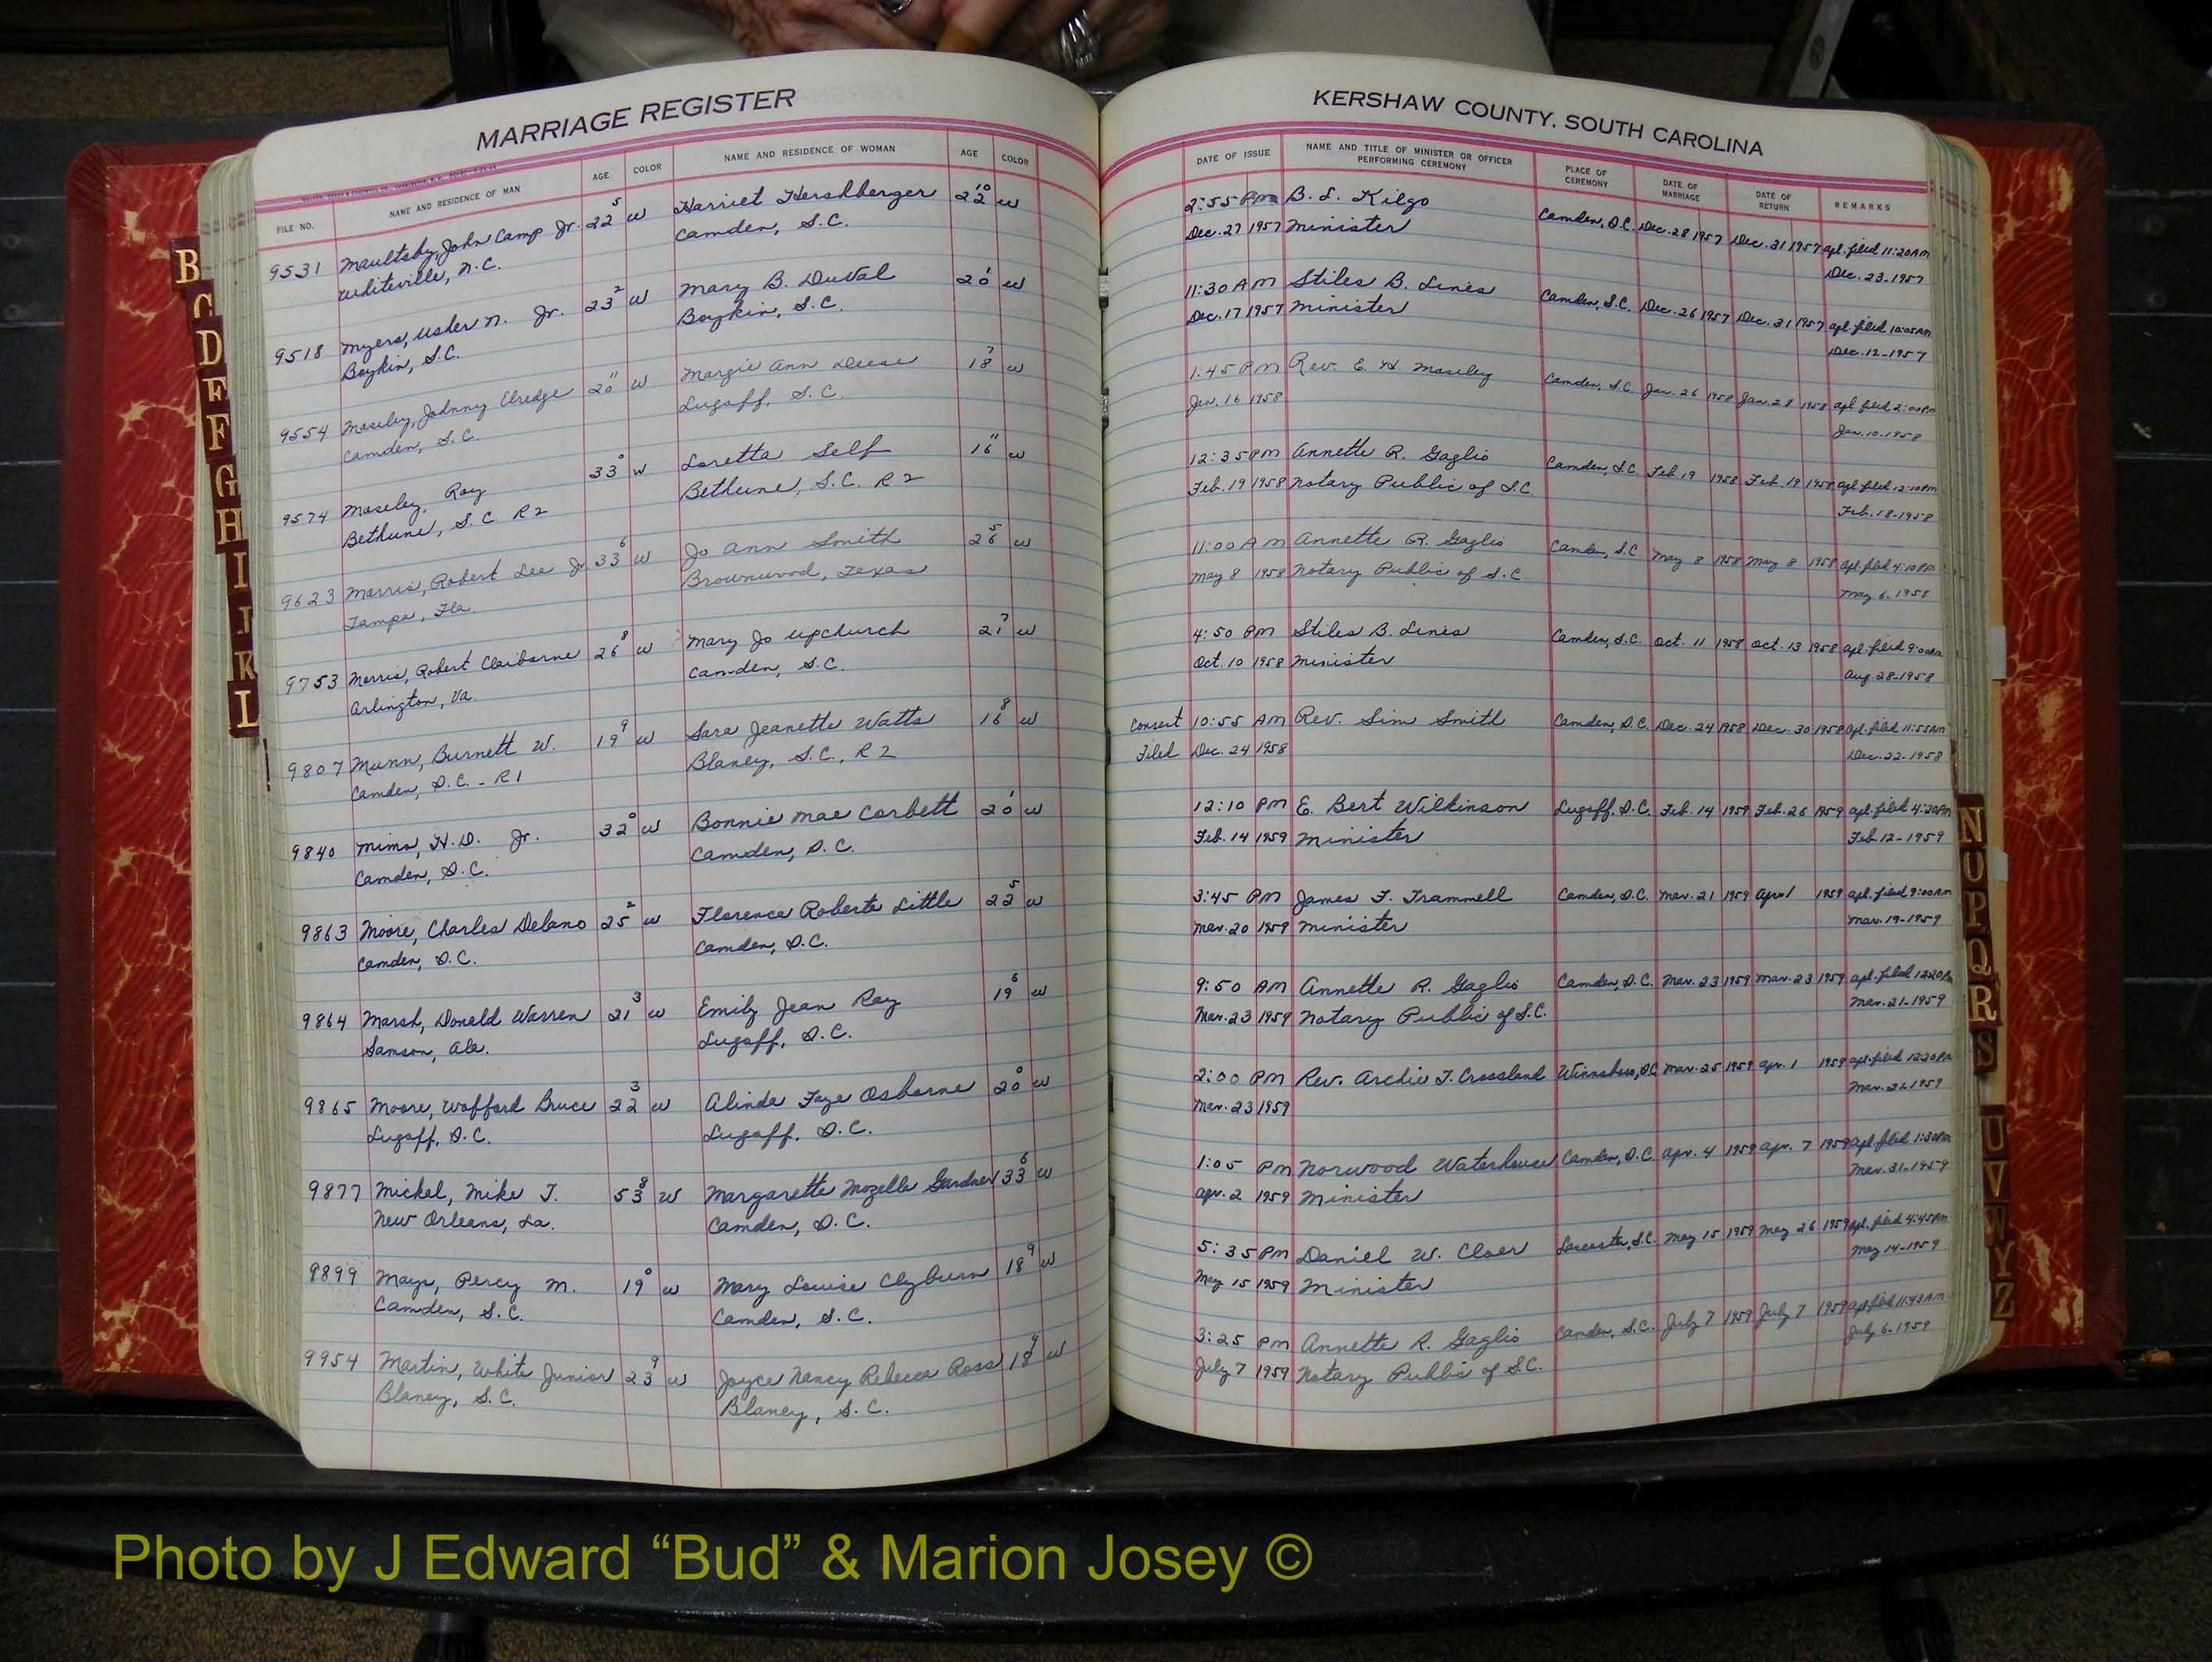 MARRIAGE REGISTER
FILE NO. NAME AND RESIDENCE OF MAN AGE COLOR NAME AND RESIDENCE OF WOMAN AGE COLOR
9531 Maultsby, John Camp Jr. 22 5 W Harriet Hershberger 22 10 W
Whiteville, N.C. Camden, S.C.
9518 Myers, Usher N. Jr. 23 2 W Mary B. DuVal 20 1 W
Boykin, S.C. Boykin, S.C.
9554 Moseley, Johnny Elredge 20 11 W Margie Ann Deese 18 7 W
Camden, S.C. Lugoff, S.C.
9574 Moseley, Roy 33 0 W Loretta Self 16 11 W
Bethune, S.C. R2 Bethune, S.C. R2
9623 Morris, Robert Lee Jr 33 6 W Jo Ann Smith 26 5 W
Tampa, Fla. Brownwood, Texas
9753 Morris, Robert Claiborne 26 8 W Mary Jo Upchurch 21 7 W
Arlington, Va. Camden, S.C.
9807 Munn, Burnett W. 19 9 W Sara Jeanette Watts 16 8 W
Camden, S.C. - R1 Blaney, S.C., R2
9840 Mims, H.D. Jr. 32 0 W Bonnie Mae Corbett 20 1 W
Camden, S.C. Camden, S.C.
9863 Moore, Charles Delano 25 2 W Florence Roberta Little 22 5 W
Camden, S.C. Camden, S.C.
9864 Marsh, Donald Warren 21 3 W Emily Jean Ray 19 6 W
Samson, Ala. Lugoff, S.C.
9865 Moore, Wofford Bruce 22 3 W Alinda Faye Osborne 20 0 W
Lugoff, S.C. Lugoff, S.C.
9877 Mickel, Mike T. 53 8 W Margarette Mozelle Gardner 33 6 W
New Orleans, La. Camden, S.C.
9899 Mays, Percy M. 19 0 W Mary Louise Clyburn 18 9 W
Camden, S.C. Camden, S.C.
9954 Martin, White Junior 23 9 W Joyce Nancy Rebecca Ross 18 4 W
Blaney, S.C. Blaney, S.C.
KERSHAW COUNTY, SOUTH CAROLINA
DATE OF ISSUE NAME AND TITLE OF MINISTER OR OFFICER PERFORMING CEREMONY PLACE OF CEREMONY DATE OF MARRIAGE DATE OF RETURN REMARKS
2:55 PM B. L. Kilgo Camden, S.C. Dec. 28 1957 Dec. 31 1957 apl. filed 11:20 AM
Dec. 27 1957 Minister Dec. 23-1957
11:30 AM Stiles B. Lines Camden, S.C. Dec. 26 1957 Dec. 31 1957 apl. filed 10:05 AM
Dec. 17 1957 Minister Dec. 12-1957
1:45 PM Rev. E. H. Moseley Camden, S.C. Jan. 26 1958 Jan. 28 1958 apl. filed 2:00 PM
Jan. 16 1958 Jan. 10-1958
12:35 PM Annette R. Gaglio Camden, S.C. Feb. 19 1958 Feb. 19 1958 apl. filed 12:10 PM
Feb. 19 1958 Notary Public of S.C. Feb. 18-1958
11:00 AM Annette R. Gaglio Camden, S.C. May 8 1958 May 8 1958 apl. filed 4:10 PM
May 8 1958 Notary Public of S.C May 6-1958
4:50 PM Stiles B. Lines Camden, S.C. Oct. 11 1958 Oct. 13 1958 apl. filed 9:00 AM
Oct. 10 1958 Minister Aug. 28-1958
Consent 10:55 AM Rev. Sim Smith Camden, S.C. Dec. 24 1958 Dec. 30 1958 apl. filed 11:55 AM
Filed Dec. 24 1958 Dec. 22-1958
12:10 PM E. Bert Wilkinson Lugoff, S.C. Feb. 14 1959 Feb. 26 1959 apl. filed 4:20 PM
Feb. 14 1959 Minister Feb. 12-1959
3:45 PM James F. Trammell Camden, S.C. Mar. 21 1959 Apr 1 1959 apl. filed 9:00 AM
Mar. 20 1959 Minister Mar. 19-1959
9:50 AM Annette R. Gaglio Camden, S.C. Mar. 23 1959 Mar. 23 1959 apl. filed 12:20 PM
Mar. 23 1959 Notary Public of S.C. Mar. 21-1959
2:00 PM Rev. Archie T. Crossland Winnsboro, S.C. Mar. 25 1959 Apr. 1 1959 apl. filed 12:20 PM
Mar. 23 1959 Mar. 21-1959
1:05 PM Norwood Waterhouse Camden, S.C. Apr. 4 1959 Apr. 7 1959 apl. filed 1:30 PM
Apr. 2 1959 Minister Mar. 31-1959
5:35 PM Daniel W. Cloer Lancaster, S.C. May 15 1959 May 26 1959 apl. filed 4:45 PM
May 15 1959 Minister May 14-1959
3:25 PM Annette R. Gaglio Camden, S.C. July 7 1959 July 7 1959 apl. filed 11:43 AM
July 7 1959 Notary Public of S.C. July 6-1959
B
C
D
E
F
G
H
I
J
K
L
N
O
P
Q
R
S
U
V
W
Y
Z
Photo by J Edward “Bud” & Marion Josey ©